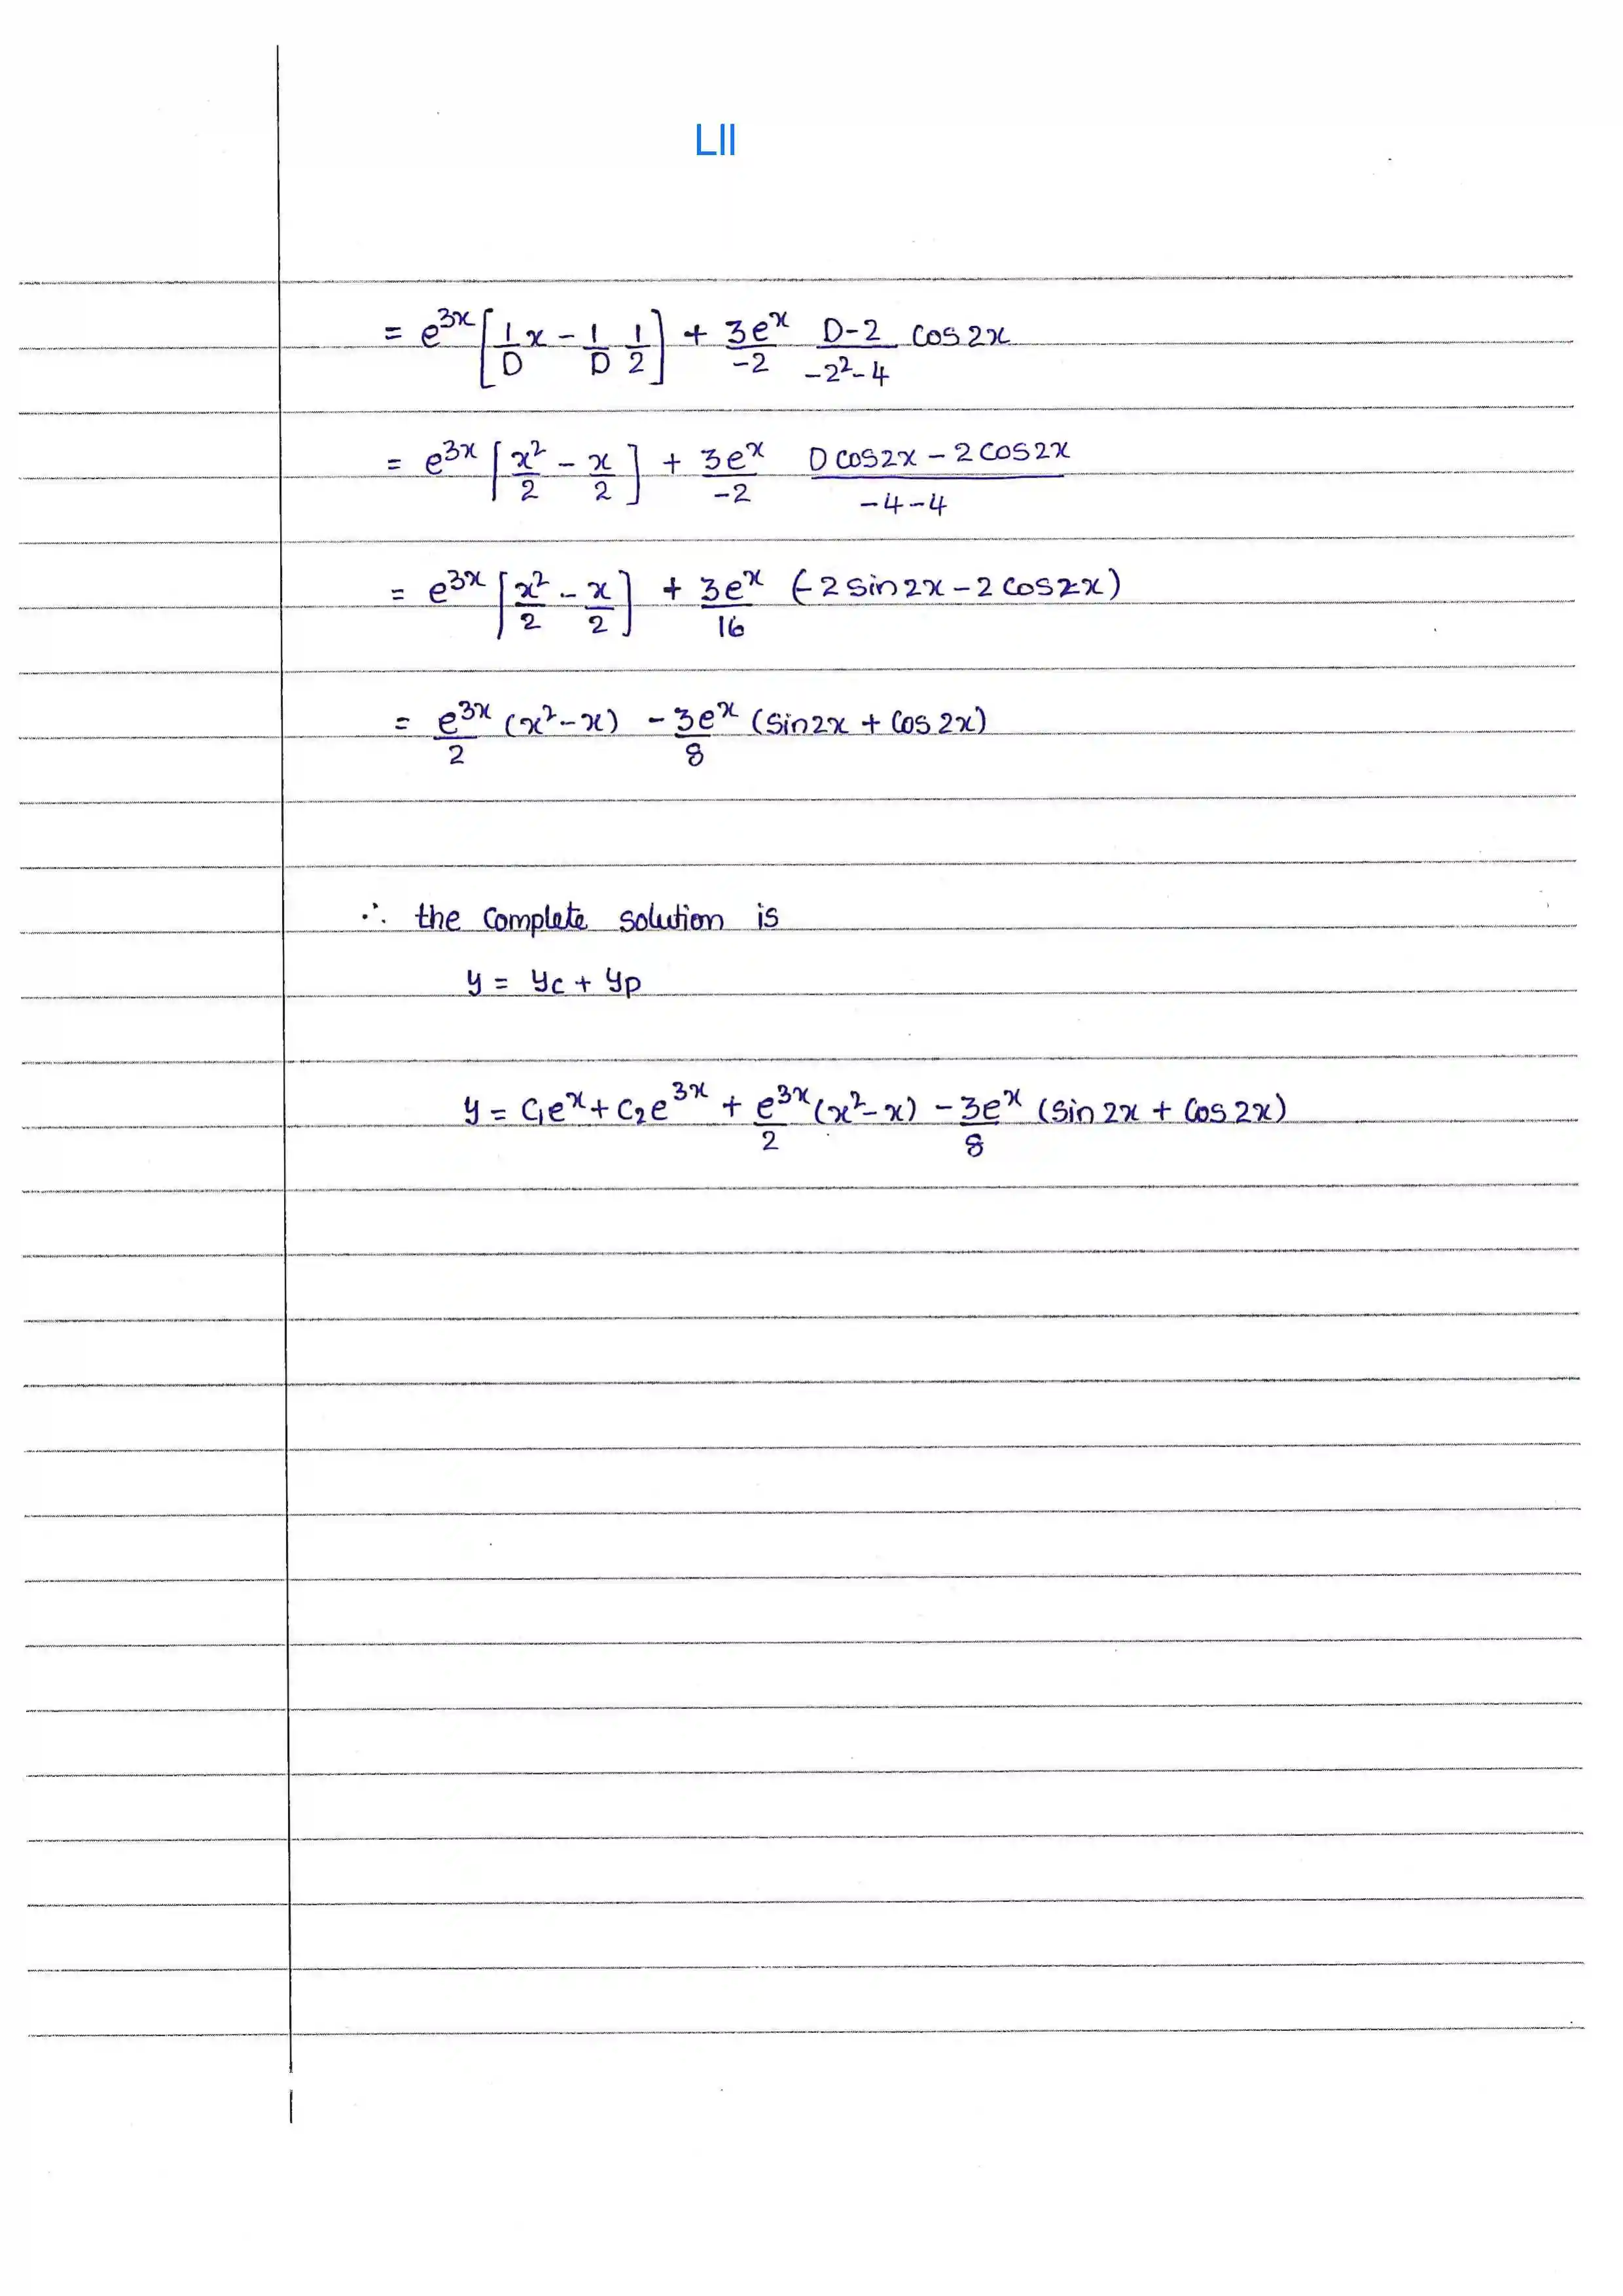 LII
= e^{3x} [ \frac{1}{D} x - \frac{1}{D} \frac{1}{2} ] + \frac{3e^x}{-2} \frac{D-2}{-2^2-4} cos 2x
= e^{3x} [ \frac{x^2}{2} - \frac{x}{2} ] + \frac{3e^x}{-2} \frac{D cos2x - 2 cos2x}{-4-4}
= e^{3x} [ \frac{x^2}{2} - \frac{x}{2} ] + \frac{3e^x}{16} (-2 sin 2x - 2 cos 2x)
= \frac{e^{3x}}{2} (x^2 - x) - \frac{3e^x}{8} (sin2x + cos 2x)
∴ the complete solution is
y = y_c + y_p
y = c_1e^x + c_2e^{3x} + \frac{e^{3x}}{2} (x^2 - x) - \frac{3e^x}{8} (sin 2x + cos 2x)